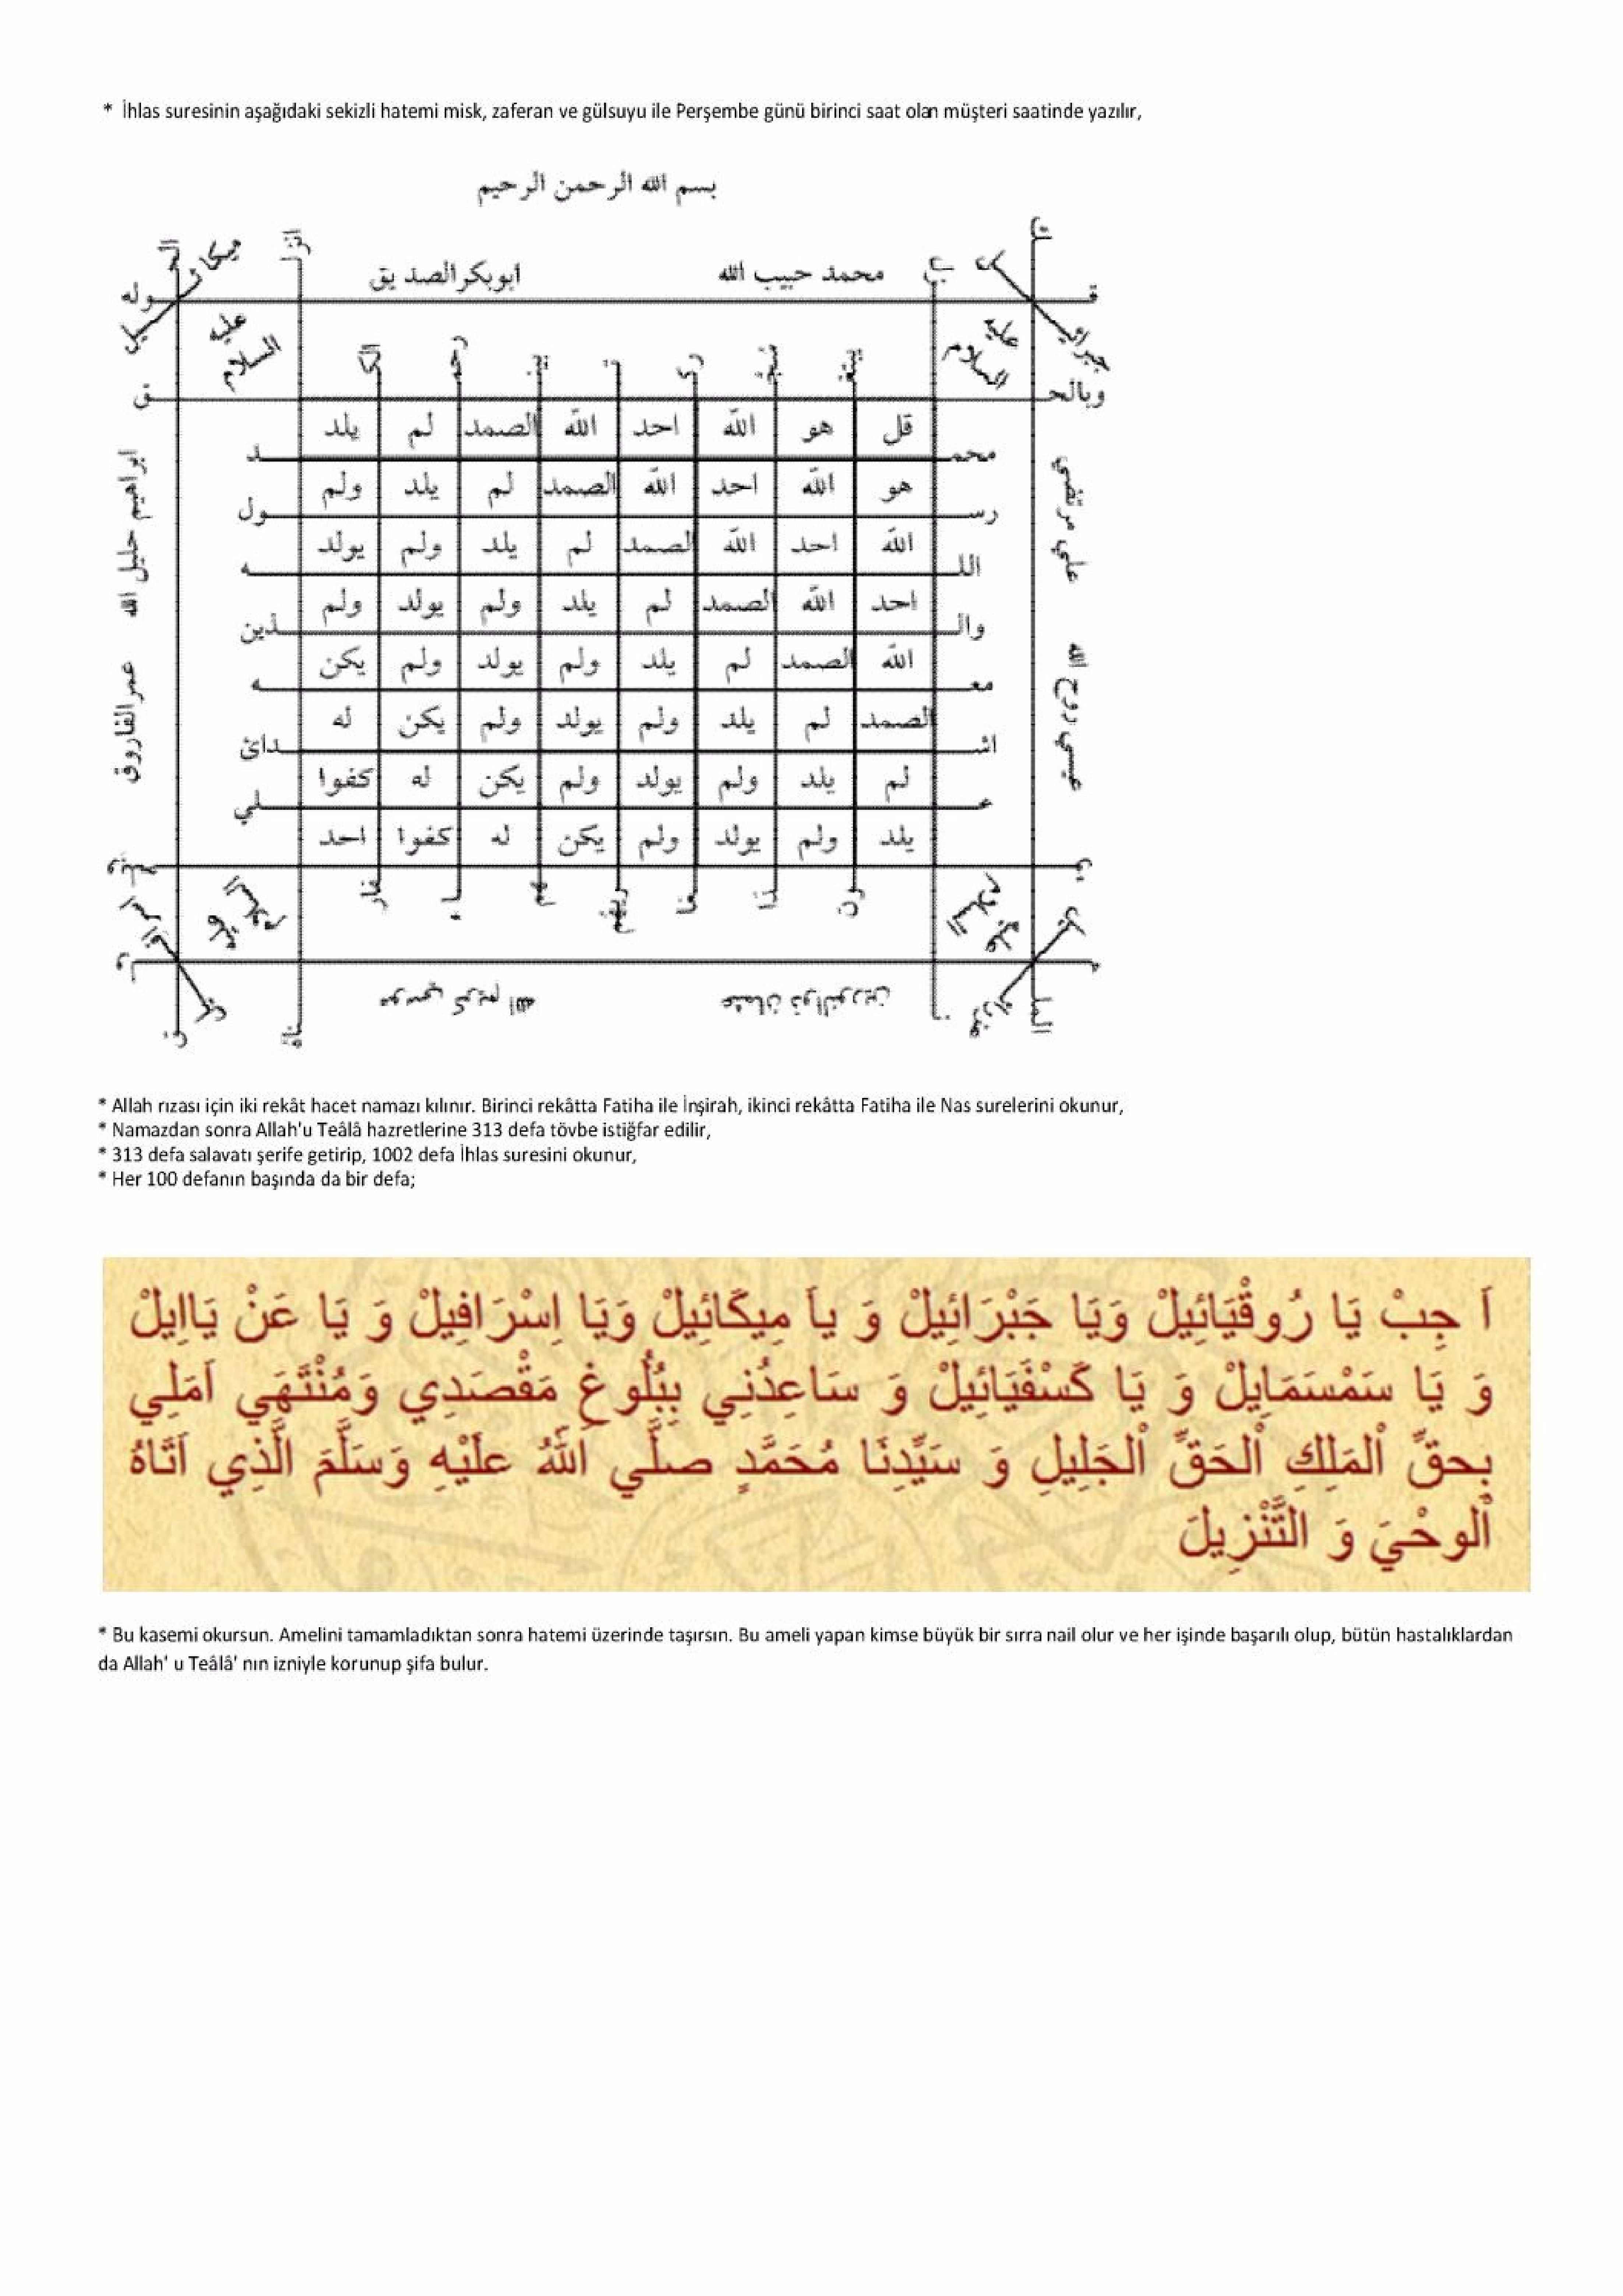 * İhlas suresinin aşağıdaki sekizli hatemi misk, zaferan ve gülsuyu ile Perşembe günü birinci saat olan müşteri saatinde yazılır,
بسم الله الرحمن الرحيم
محمد حبيب الله ابوبكر الصديق
عليه السلام
عليه السلام
وبالحـ ـق
قل هو الله احد الله الصمد لم يلد
محمـ ـد
هو الله احد الله الصمد لم يلد ولم
رسـ ـول
الله احد الله الصمد لم يلد ولم يولد
اللـ ـه
احد الله الصمد لم يلد ولم يولد ولم
والـ ـذين
الله الصمد لم يلد ولم يولد ولم يكن
معـ ـه
الصمد لم يلد ولم يولد ولم يكن له
اشـ ـدائ
لم يلد ولم يولد ولم يكن له كفوا
عـ ـلي
يلد ولم يولد ولم يكن له كفوا احد
علي مرتضي
عيسي روح الله
ابراهيم خليل الله
عمر الفاروق
عثمان ذوالنورين
موسي كريم الله
* Allah rızası için iki rekât hacet namazı kılınır. Birinci rekâtta Fatiha ile İnşirah, ikinci rekâtta Fatiha ile Nas surelerini okunur,
* Namazdan sonra Allah'u Teâlâ hazretlerine 313 defa tövbe istiğfar edilir,
* 313 defa salavatı şerife getirip, 1002 defa İhlas suresini okunur,
* Her 100 defanın başında da bir defa;
اَ جِبْ يَا رُوقْيَائِيلْ وَيَا جَبْرَائِيلْ وَ ياَ مِيكَائِيلْ وَيَا اِسْرَافِيلْ وَ يَا عَنْ يَااِيلْ
وَ يَا سَمْسَمَايِلْ وَ يَا كَسْفَيَائِيلْ وَ سَاعِدُنِي بِبُلُوغِ مَقْصَدِي وَمُنْتَهَي اَمَلِي
بِحقِّ اْلمَلِكِ اْلحَقِّ اْلجَلِيلِ وَ سَيِّدِنَا مُحَمَّدٍ صلَّي اللهُ علَيْهِ وَسَلَّمَ الَّذِي اَتَاهُ
اْلوحْيَ وَ التَّنْزِيلَ
* Bu kasemi okursun. Amelini tamamladıktan sonra hatemi üzerinde taşırsın. Bu ameli yapan kimse büyük bir sırra nail olur ve her işinde başarılı olup, bütün hastalıklardan
da Allah' u Teâlâ' nın izniyle korunup şifa bulur.